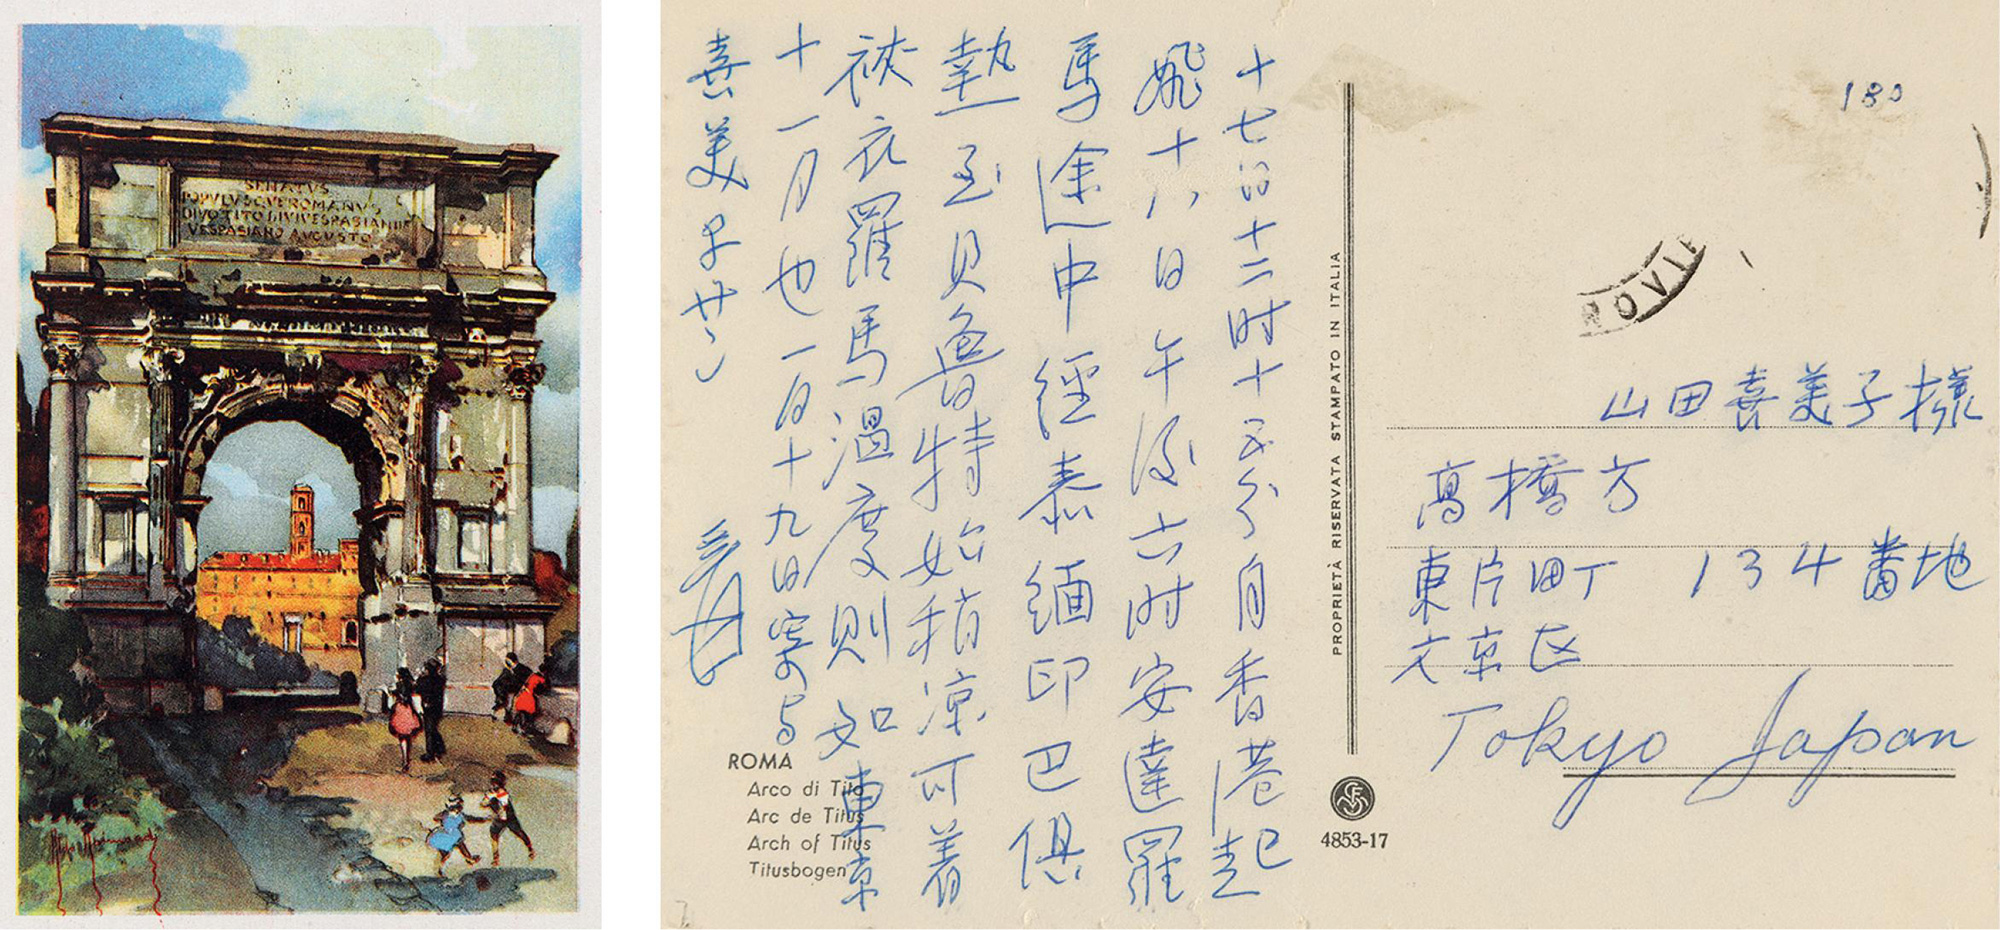 SENATVS
POPVLVSQVEROMANVS
DIVOTITODIVIVESPASIANIF
VESPASIANO AVGVSTO
十七日十二时十五分自香港起
飛十八日午后六时安達羅
馬途中經泰緬印巴俱
熱至貝魯特始稍凉可着
裌衣羅馬温度則如東京
十一月也一月十九日寄与
喜美子サン 爰
ROMA
Arco di Tito
Arc de Titus
Arch of Titus
Titusbogen
PROPRIETÀ RISERVATA STAMPATO IN ITALIA
4853-17
180
ROVIE
山田喜美子様
高橋方
東片町 134番地
文京区
Tokyo Japan